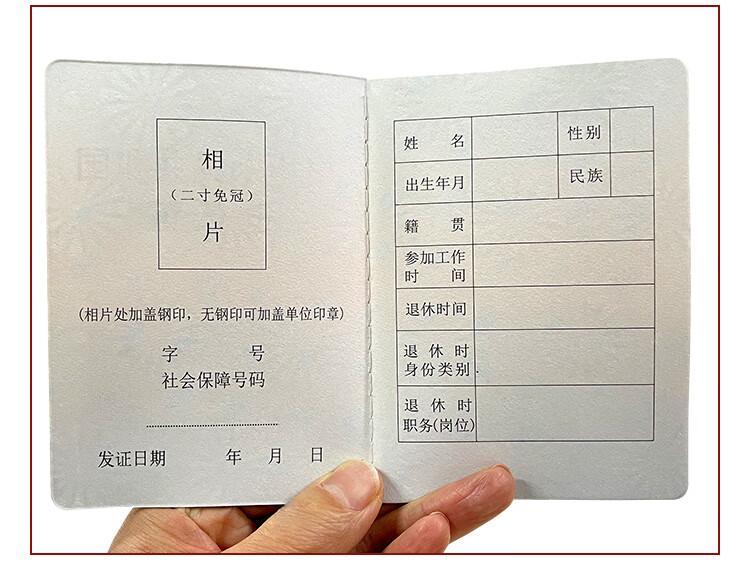 相
（二寸免冠）
片
(相片处加盖钢印，无钢印可加盖单位印章)
字 号
社会保障号码
发证日期 年 月 日
姓 名 性别
出生年月 民族
籍 贯
参加工作
时 间
退休时间
退 休 时
身份类别
退 休 时
职务(岗位)